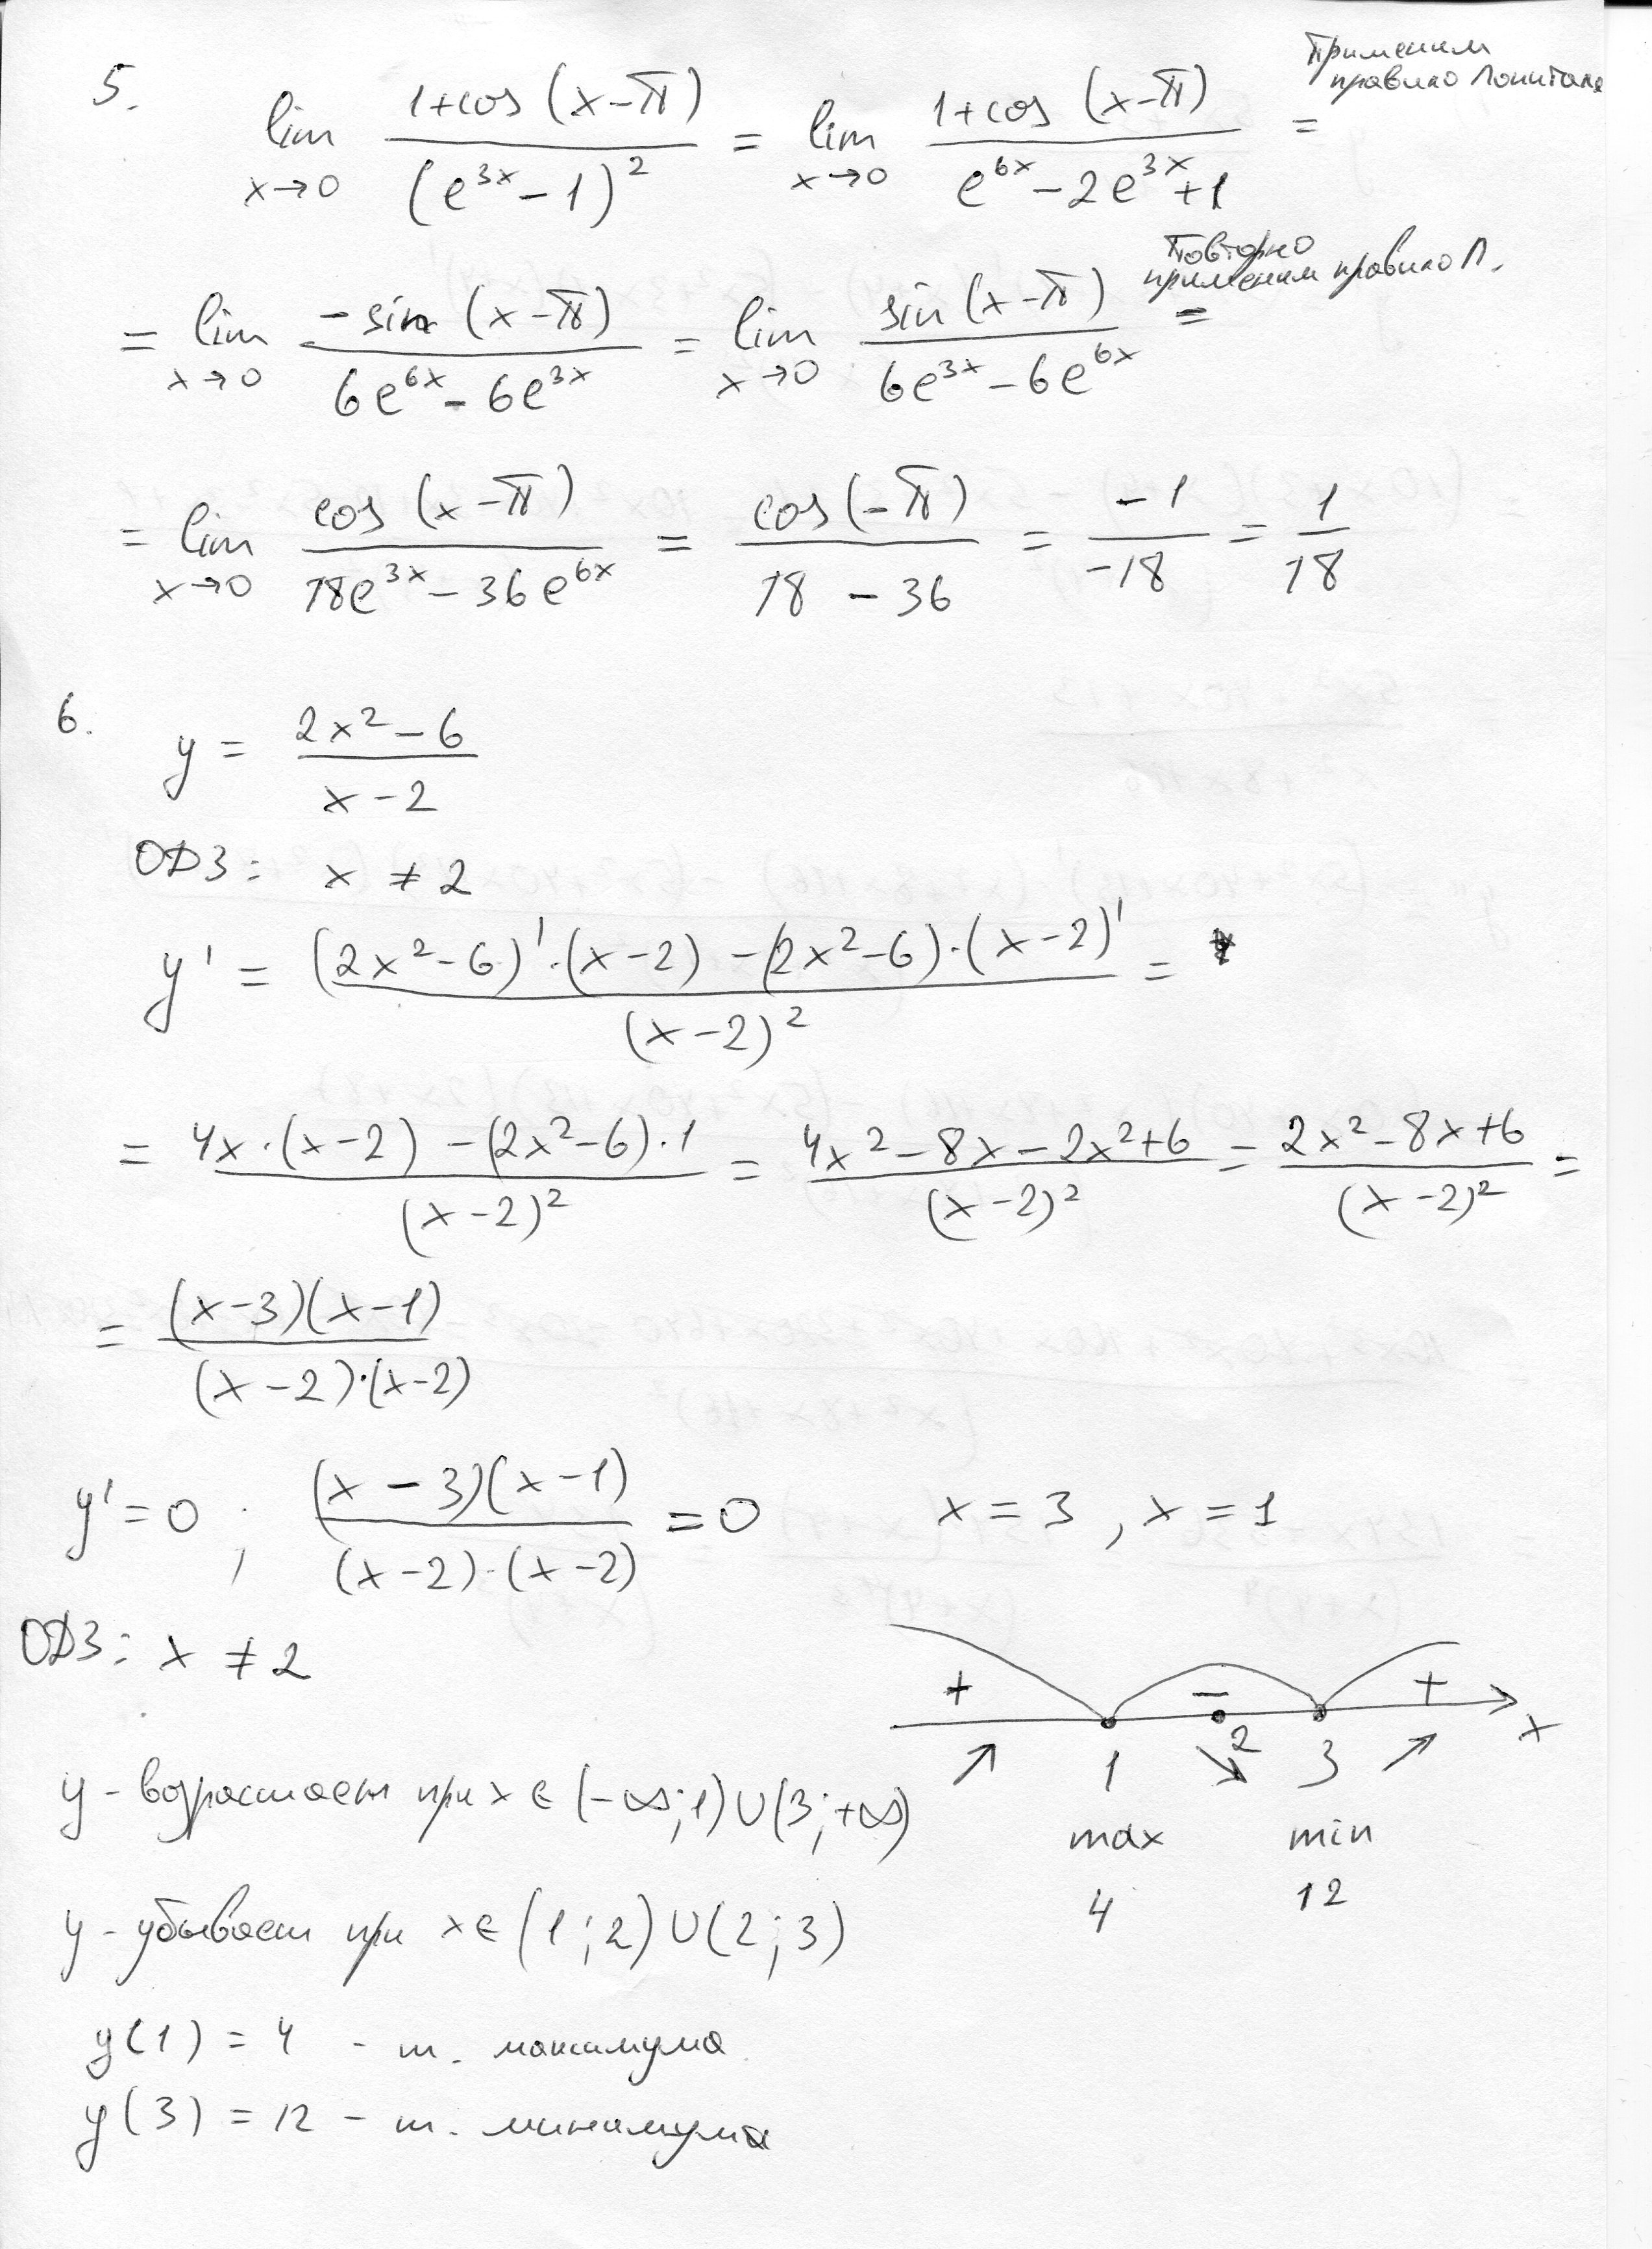 Применим
правило Лопиталя
5. lim x→0 (1+cos(x-π))/(e^{3x}-1)^2 = lim x→0 (1+cos(x-π))/(e^{6x}-2e^{3x}+1) =
Повторно
применим правило Л.
= lim x→0 (-sin(x-π))/(6e^{6x}-6e^{3x}) = lim x→0 (sin(x-π))/(6e^{3x}-6e^{6x}) =
= lim x→0 (cos(x-π))/(18e^{3x}-36e^{6x}) = cos(-π)/(18-36) = -1/-18 = 1/18
6. y = (2x^2-6)/(x-2)
ОДЗ: x ≠ 2
y' = ((2x^2-6)'·(x-2)-(2x^2-6)·(x-2)')/(x-2)^2 =
= (4x·(x-2)-(2x^2-6)·1)/(x-2)^2 = (4x^2-8x-2x^2+6)/(x-2)^2 = (2x^2-8x+6)/(x-2)^2 =
= ((x-3)(x-1))/((x-2)·(x-2))
y'=0 ; ((x-3)(x-1))/((x-2)·(x-2)) = 0 x = 3, x = 1
ОДЗ: x ≠ 2
+ - +
1 2 3 x
max min
4 12
y - возрастает при x ∈ (-∞;1)∪(3;+∞)
y - убывает при x∈(1;2)∪(2;3)
y(1) = 4 - т. максимума
y(3) = 12 - т. минимума